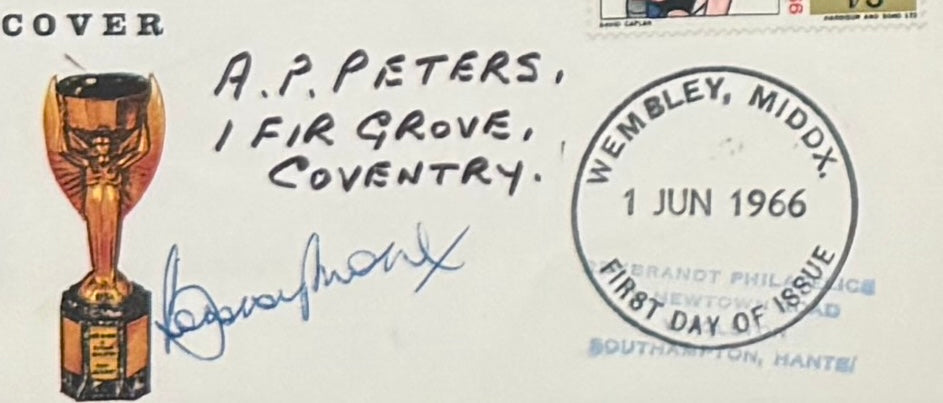 COVER
DAVID CAPLAN
HARRISON AND SONS LTD
A.P. PETERS,
1 FIR GROVE,
COVENTRY.
WEMBLEY, MIDDX.
1 JUN 1966
FIRST DAY OF ISSUE
NEWTOWN ROAD
SOUTHAMPTON, HANTS